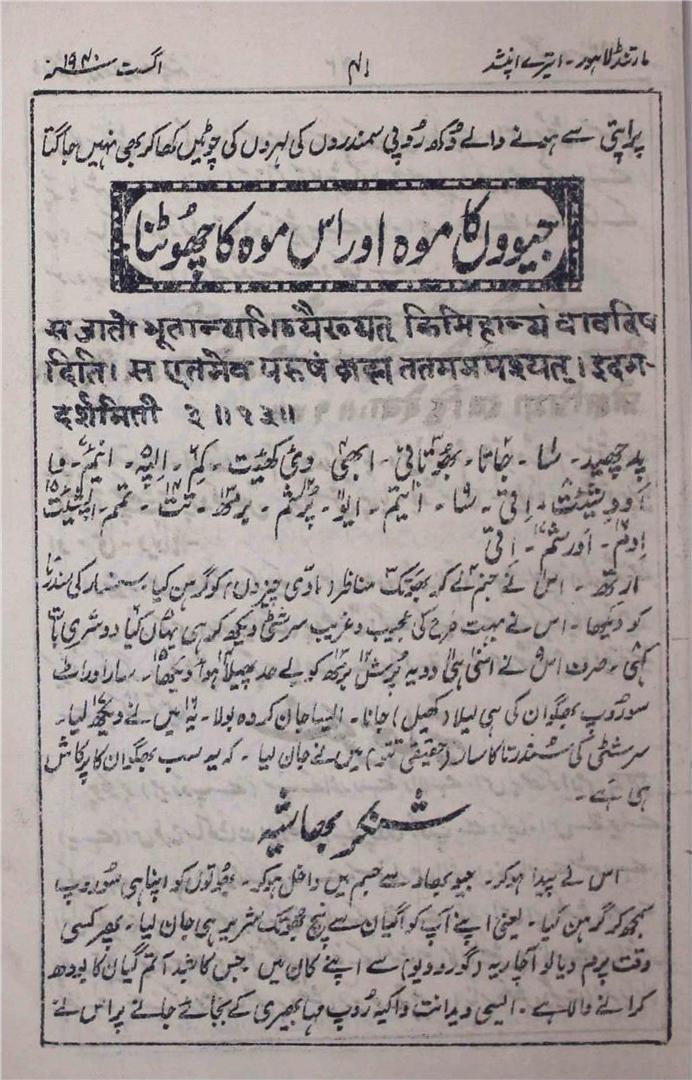 مارتنڈ لاہور۔ ایترے اپنشد ۴۱ اگست ۱۹۴۰ء
پراپتی سے ہونے والے دُکھ رُوپی سمندروں کی لہروں کی چوٹیں کھا کر بھی نہیں جاگتا
جیووں کا موہ اور اس موہ کا چھُوٹنا
स जातो भूतान्यभिव्यैख्यत् किमिहान्यं वावदिष
दिति। स एतमेव पुरुषं ब्रह्म ततममपश्यत्। इदम-
दर्शमिती ३ ॥१३॥
پدچھید۔ سَا۔ جَاتا۔ بھُوتانی۔ ابھی وئی کھیَت۔ کِم۔ اِیہَہ۔ انیَم۔ وا
اَووِدِیشَت۔ اِتی۔ سَا۔ ایتم۔ ایو۔ پُرُشم۔ برہم۔ تت۔ تمم۔ اپشیَت
اِدم۔ اَدرشم۔ اِتی
ارتھ۔ اس نے جنم لے کر بھوتک مناظر (مادّی چیزوں) کو گرہن کیا۔ سنسار کی سندرتا
کو دیکھا۔ اس نے بہت طرح کی عجیب و غریب سرشٹی دیکھ کر ہی یہاں کیا دوسری بات
کہی۔ صرف اس نے اسی ہی دویہ پُرش برہم کو بے حد پھیلا ہوا دیکھا۔ سارا وراٹ
سوروپ بھگوان کی ہی لیلا (کھیل) جانا۔ ایسا جان کر وہ بولا۔ یہ میں نے دیکھ لیا۔
سرشٹی کی سُندرتا کا سار (حقیقی تتو) میں نے جان لیا۔ کہ یہ سب بھگوان کا پرکاش
ہی ہے۔
شنکر بھاشیہ
اس نے پیدا ہو کر۔ جیو بھاو سے جسم میں داخل ہو کر۔ بھُوتوں کو اپنا ہی سُوروپ
سمجھ کر گرہن کیا۔ یعنی اپنے آپ کو اگیان سے پنچ بھوتک شریر ہی جان لیا۔ پھر کسی
وقت پرم دیالو آچاریہ (گورودیو) سے اپنے کان میں جس کا شبد آتم گیان کا بودھ
کرانے والا ہے۔ ایسی ویدانت واکیہ رُوپ مہا بھیری کے بجائے جانے پر اس نے